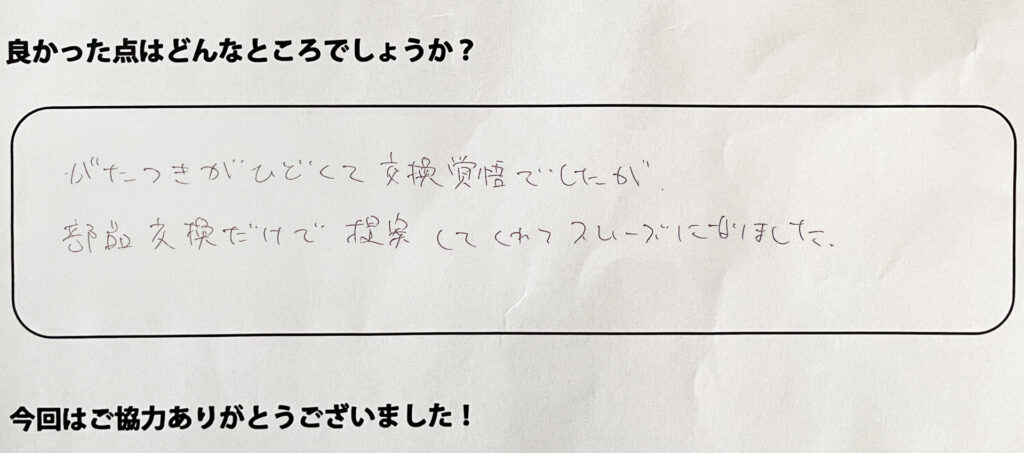 良かった点はどんなところでしょうか？
がたつきがひどくて交換覚悟でしたが
部品交換だけで提案してくれてスムーズになりました。
今回はご協力ありがとうございました！